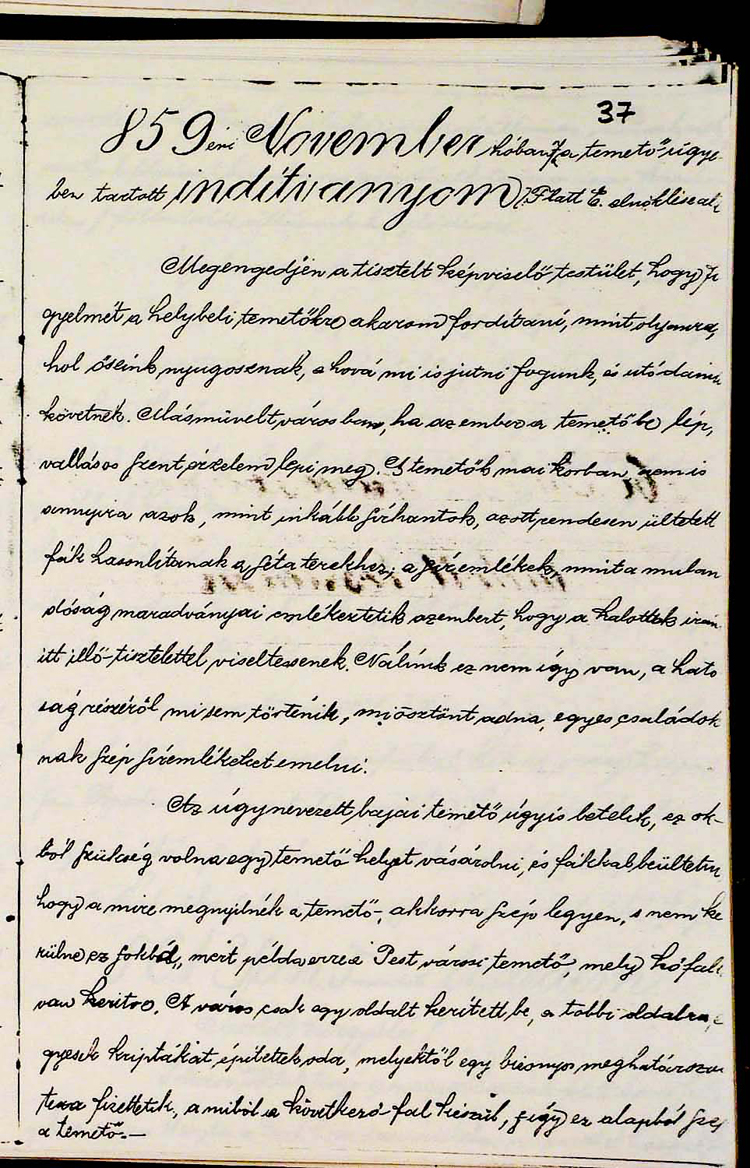 37
859 évi November hóban, a temető ügyé-
ben tartott indítványom (Flatt E. elnöklése al
Megengedjen a tisztelt képviselő testület, hogy fi
gyelmét, a helybeli temetőkre akarom fordítani, mint olyanra,
hol őseink nyugosznak, a hová mi is jutni fogunk, és utódain
követnek. Másművelt városban, ha az ember a temetőbe lép,
vallásos szent érzelem lepi meg. S temetők mai korban nem is
annyira azok, mint inkább sírhantok, azott rendesen ültetett
fák hasonlítanak a séta terekhez, a síremlékek, mint a mulan
dóság maradványai emlékeztetik azembert, hogy a halottak irán
itt illő tisztelettel viseltessenek. Nálunk ez nem így van, a ható
ság részéről mi sem történik, mi ösztönt adna, egyes családok
nak szép síremlékeket emelni.
Az úgynevezett bajai temető úgyis betelik, ez ok-
ból szükség volna egy temető helyet vásárolni, és fákkal beültetni
hogy a mire megnyilnék a temető, akkorra szép legyen, s nem ke
rülne ez sokba, mert példa erre a Pest városi temető, mely kőfal
van kerítve. A város csak egy oldalt kerített be, a többi oldalra
gyesek kriptákat építettek oda, melyektől egy bizonyos meghatározo
taxa fizettetik, a miből a következő fal készül, s így ez alapból sze
a temető.—